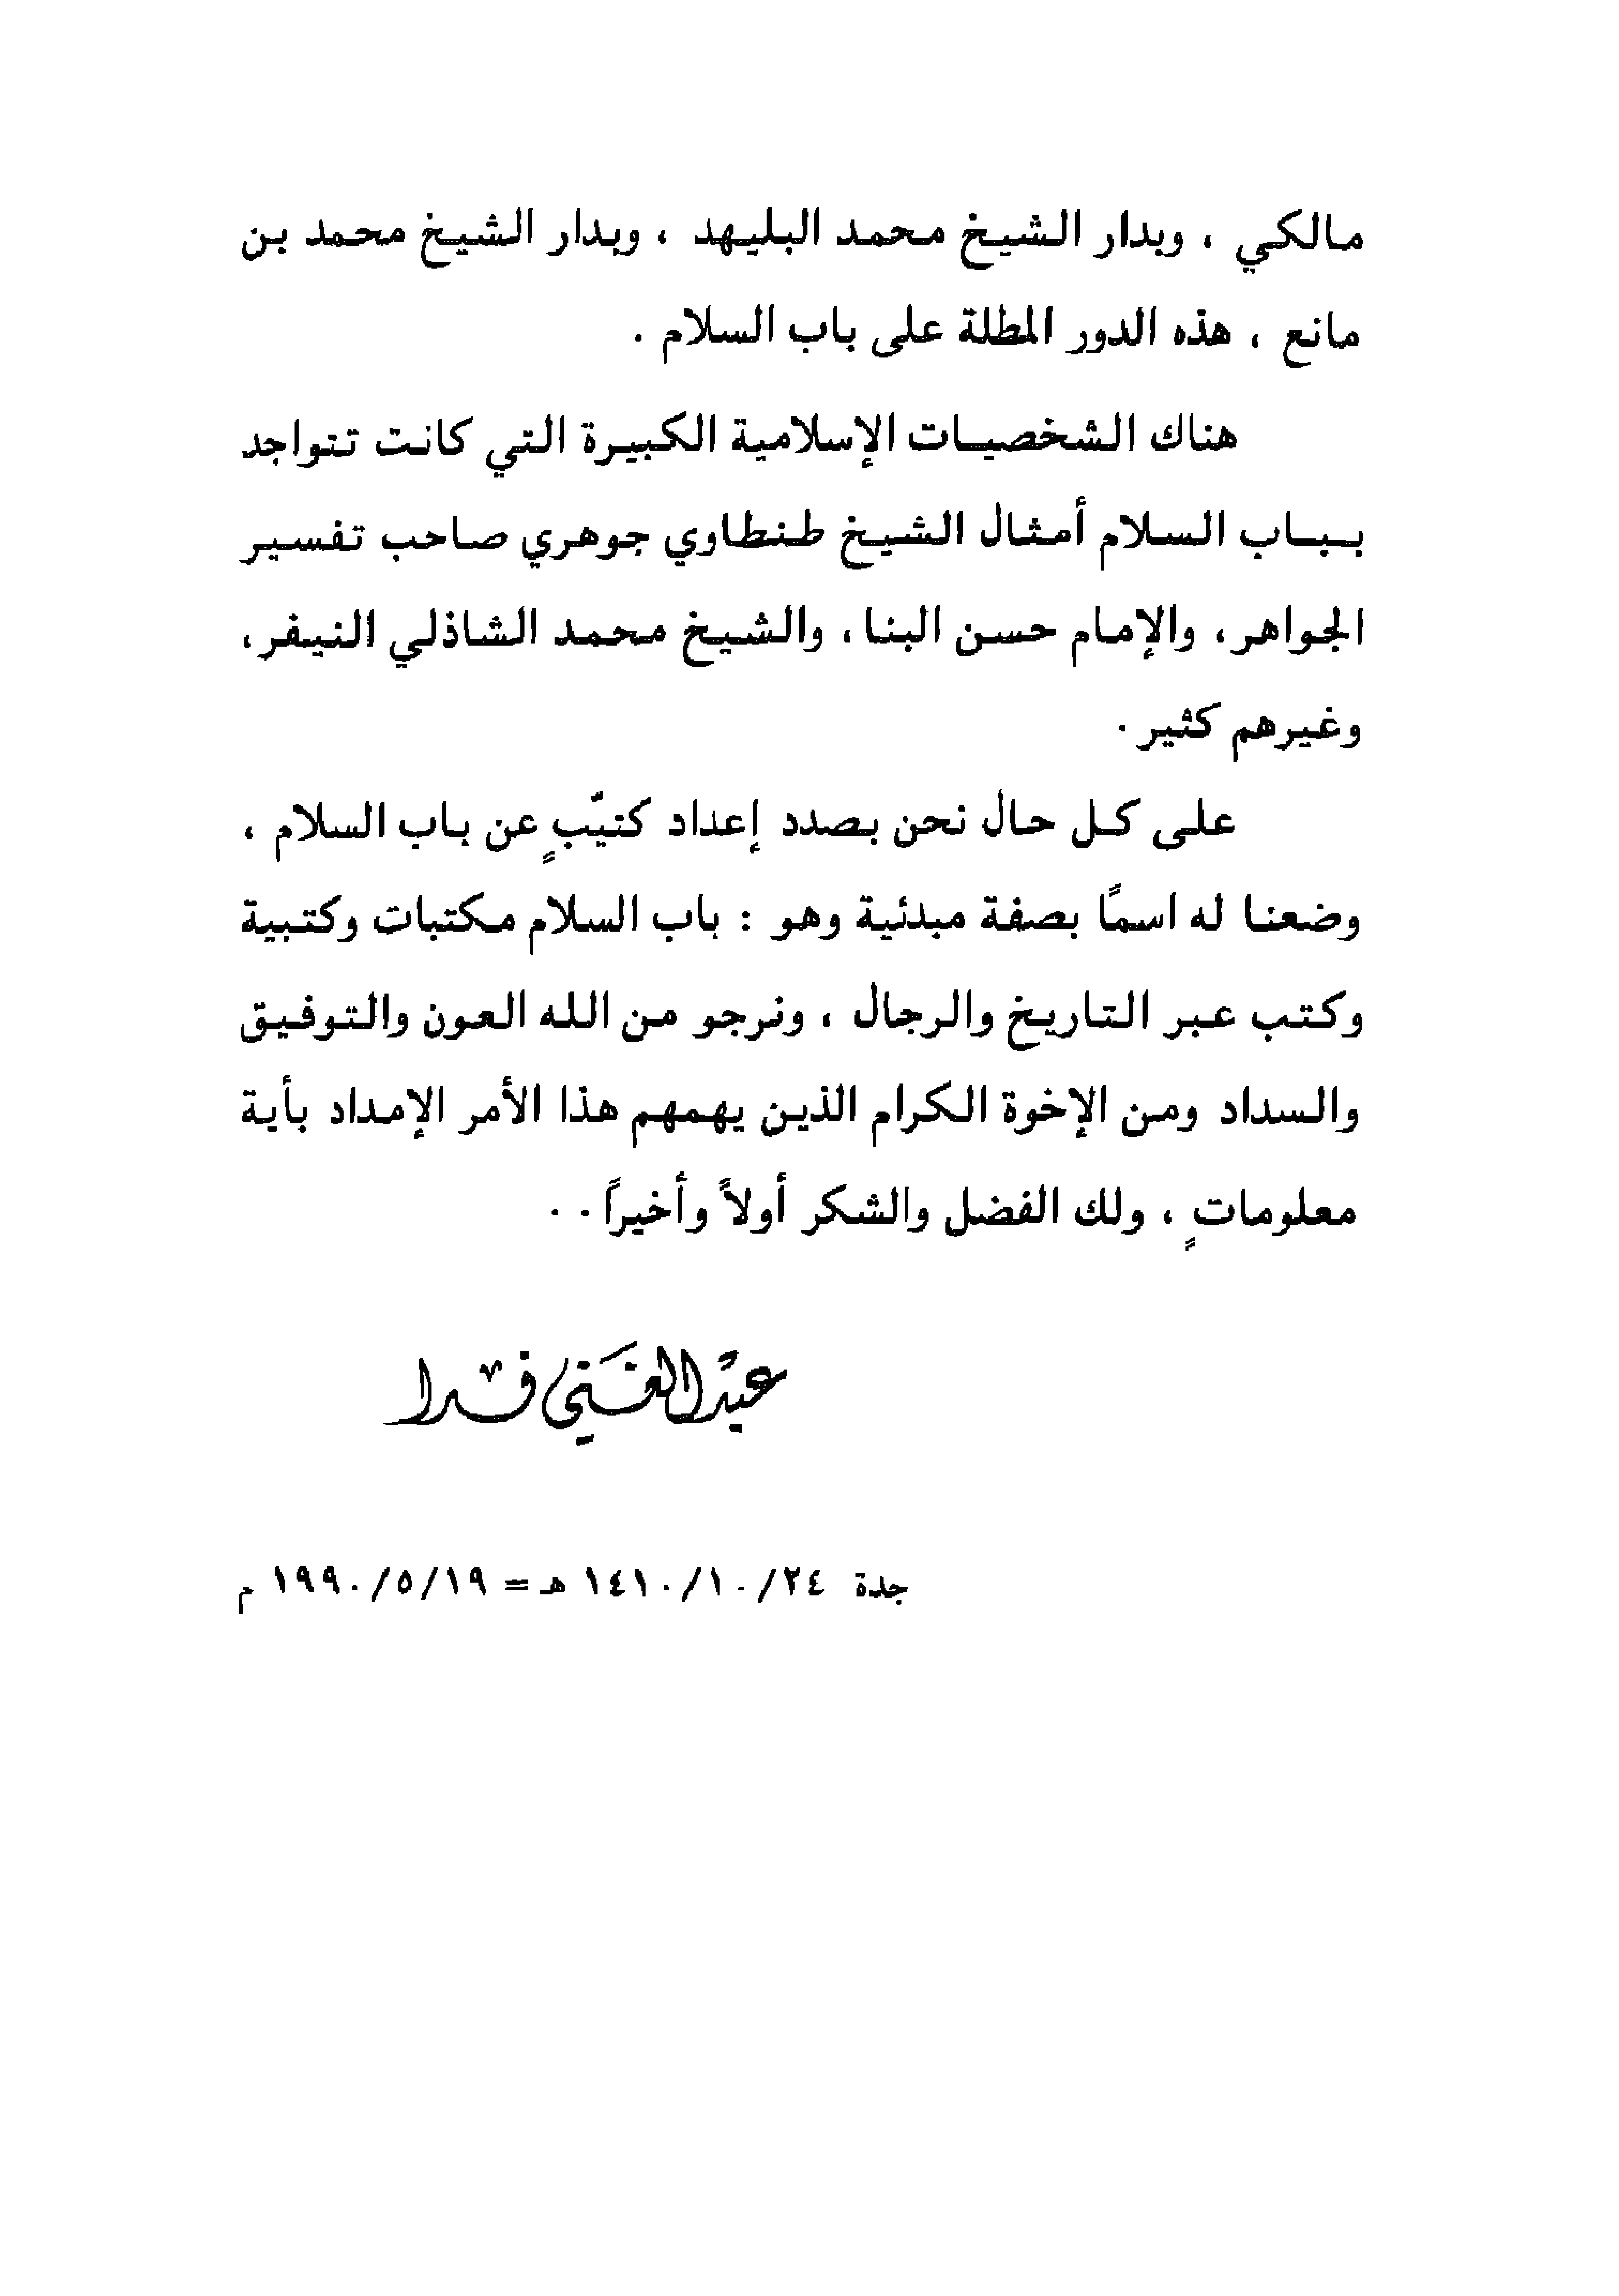 مالكي ، وبدار الشيخ محمد البليهد ، وبدار الشيخ محمد بن
مانع ، هذه الدور المطلة على باب السلام .
هناك الشخصيات الإسلامية الكبيرة التي كانت تتواجد
بباب السلام أمثال الشيخ طنطاوي جوهري صاحب تفسير
الجواهر، والإمام حسن البنا، والشيخ محمد الشاذلي النيفر،
وغيرهم كثير .
على كل حال نحن بصدد إعداد كتيّبٍ عن باب السلام ،
وضعنا له اسمًا بصفة مبدئية وهو : باب السلام مكتبات وكتبية
وكتب عبر التاريخ والرجال ، ونرجو من الله العون والتوفيق
والسداد ومن الإخوة الكرام الذين يهمهم هذا الأمر الإمداد بأية
معلوماتٍ ، ولك الفضل والشكر أولاً وأخيراً . .
عبد الغني فدا
جدة ١٤١٠/١٠/٢٤ هـ = ١٩٩٠/٥/١٩ م